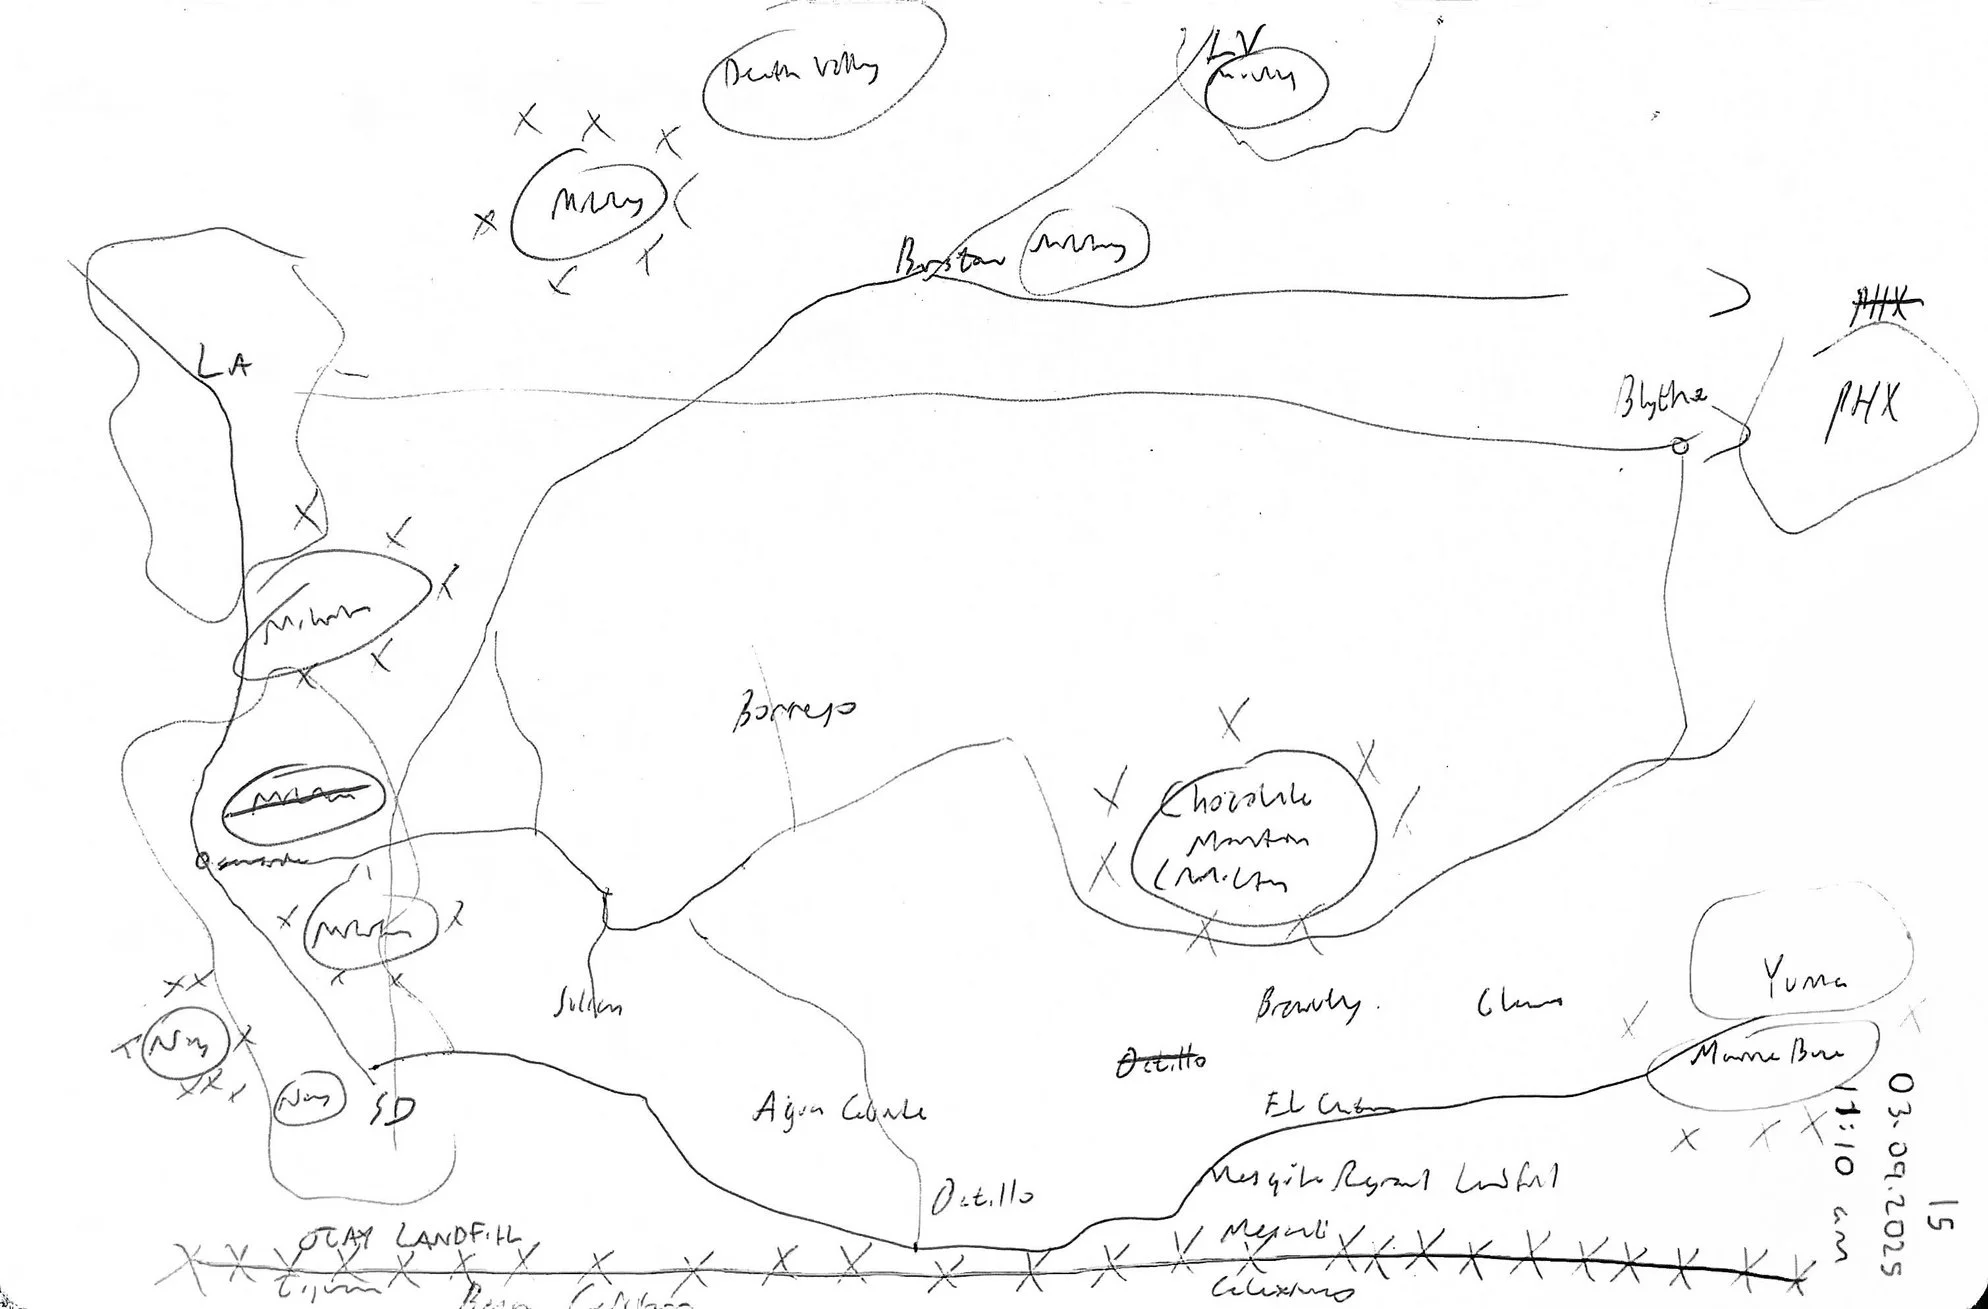 Death Valley
LV
Military
Military
Barstow
Military
PHX
LA
Blythe
PHX
Military
Borrego
Military
Chocolate
Mountain
(Military
Oceanside
Military
Yuma
Julian
Brawley.
Glamis
Navy
Ocotillo
Marine Base
Navy
SD
Agua Caliente
El Centro
Mesquite Regional Landfill
Ocotillo
OTAY LANDFILL
Mexicali
Tijuana
Baja California
Calexico
15
03.09.2025
11:10 am